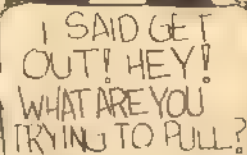 I SAID GET
OUT! HEY!
WHAT ARE YOU
TRYING TO PULL?